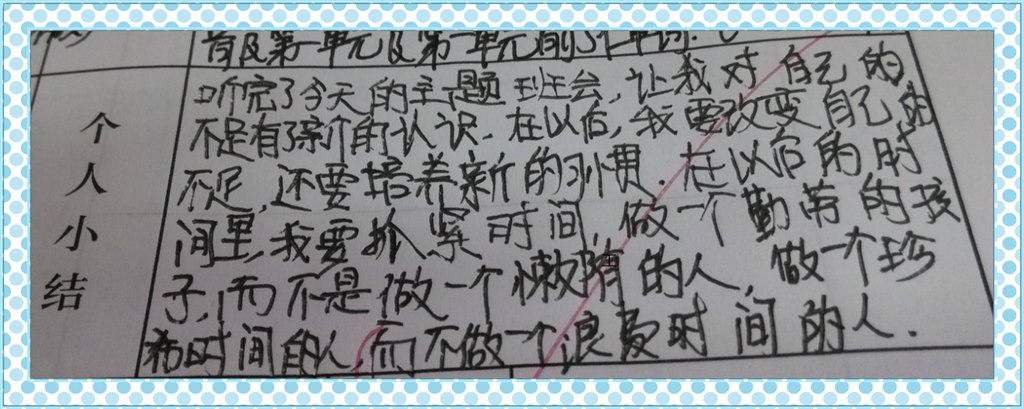 首及第一单元及第一单元前
听完了今天的主题班会,让我对自己的
不足有了新的认识.在以后,我要改变自己的
不足,还要培养新的习惯.在以后的时
间里,我要抓紧时间,做一个勤劳的孩
子,而不是做一个懒隋的人,做一个珍
希时间的人,而不做一个浪费时间的人.
个
人
小
结